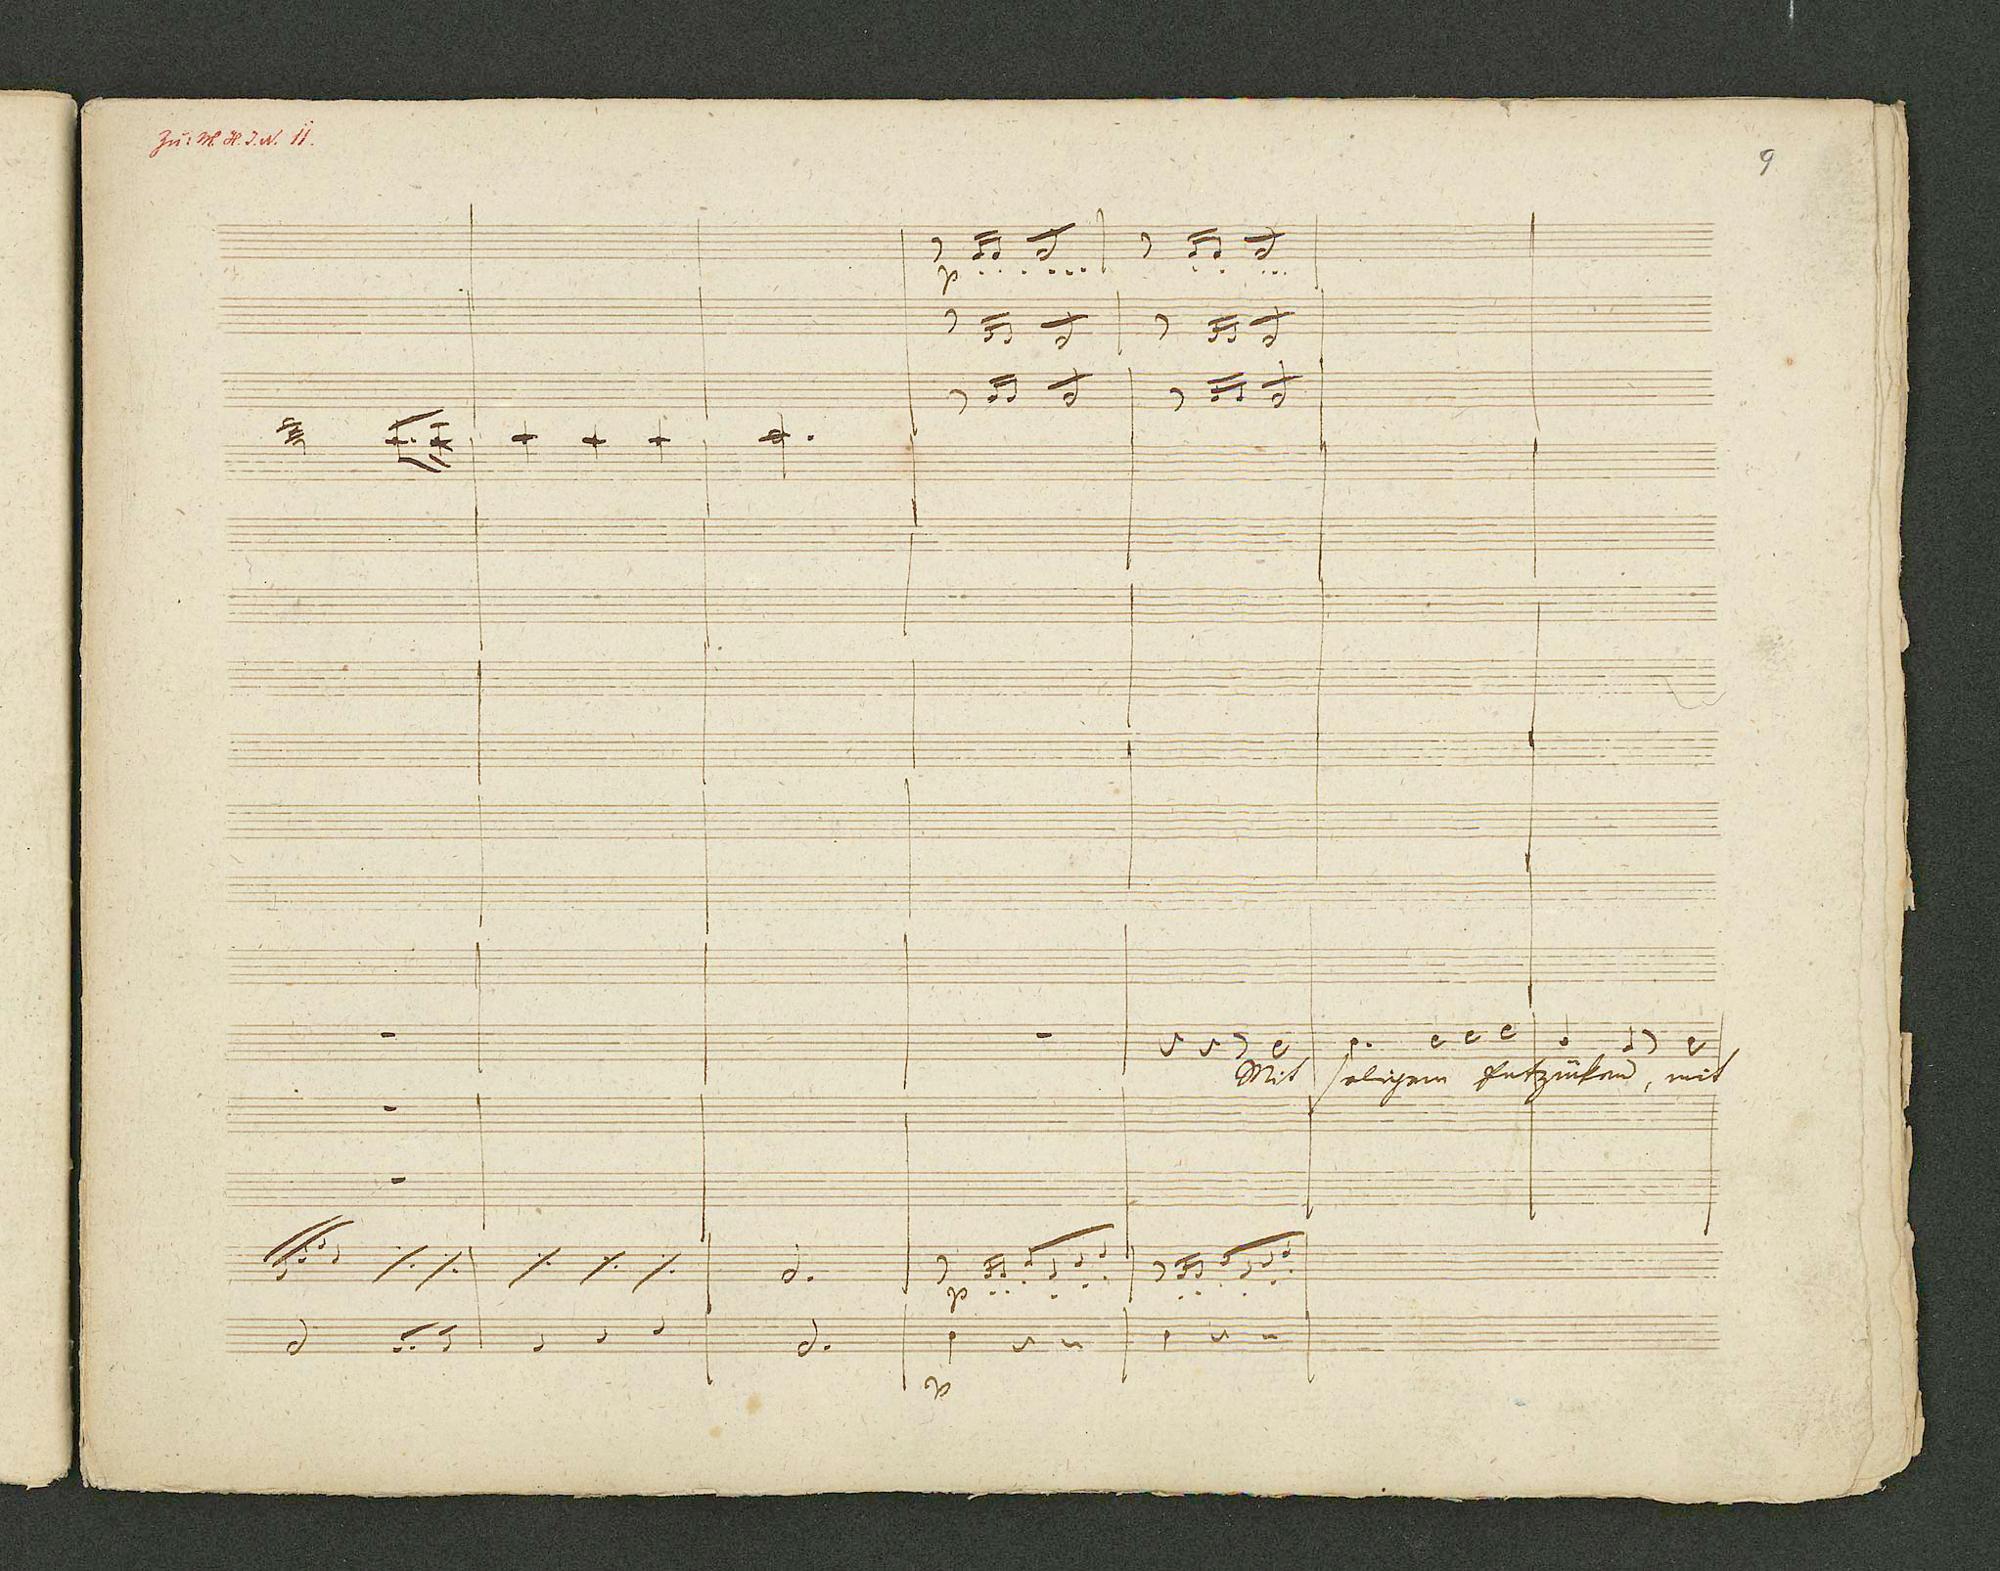 Zu: M.H.I.N. 11.
9
Mit seligem Entzücken, mit